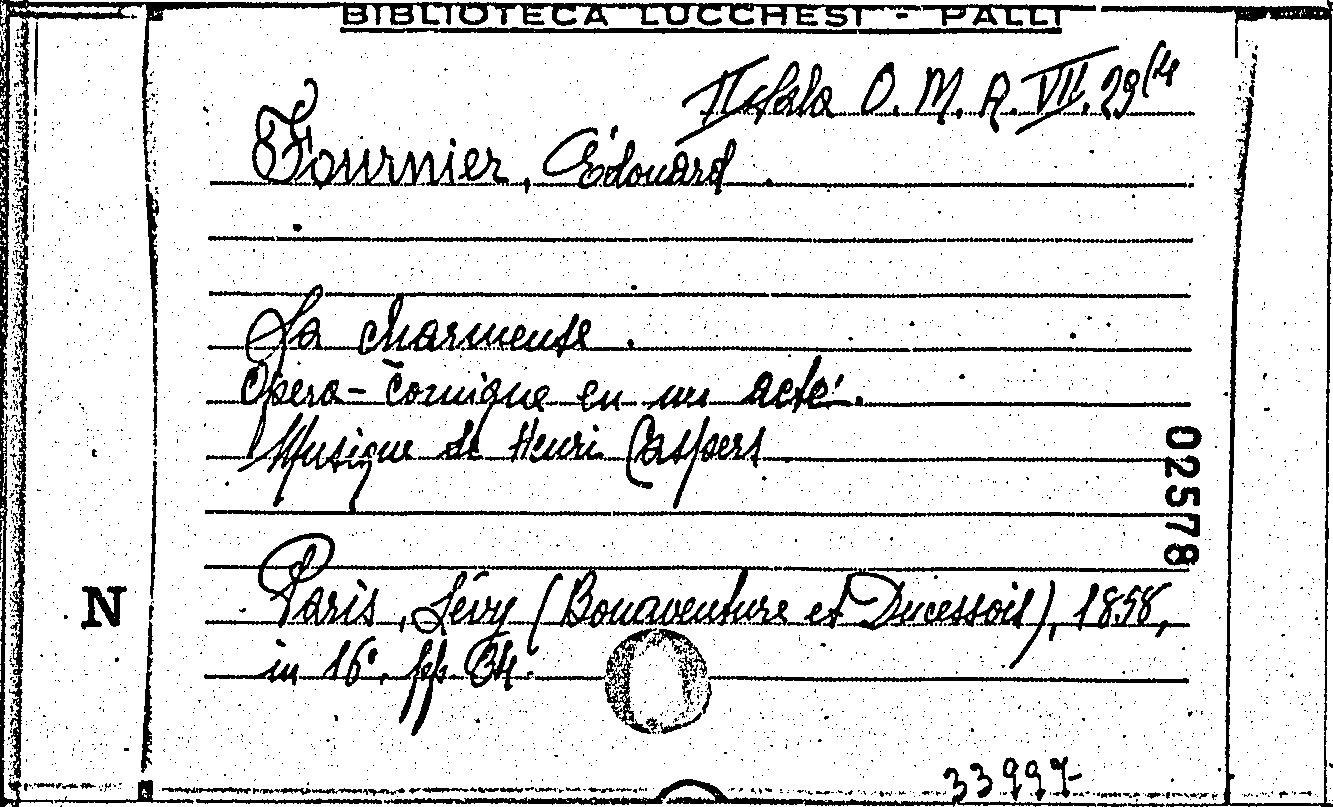 BIBLIOTECA LUCCHESI - PALLI
II Sala O. M. A. VII. 29/4
Fournier, Édouard.
La charmeuse.
Opéra-Comique en un acte.
Musique de Henri Caspers
02578
Paris, Lévy (Bonaventure et Ducessois), 1858,
N
in 16°. pp. 34.
33997